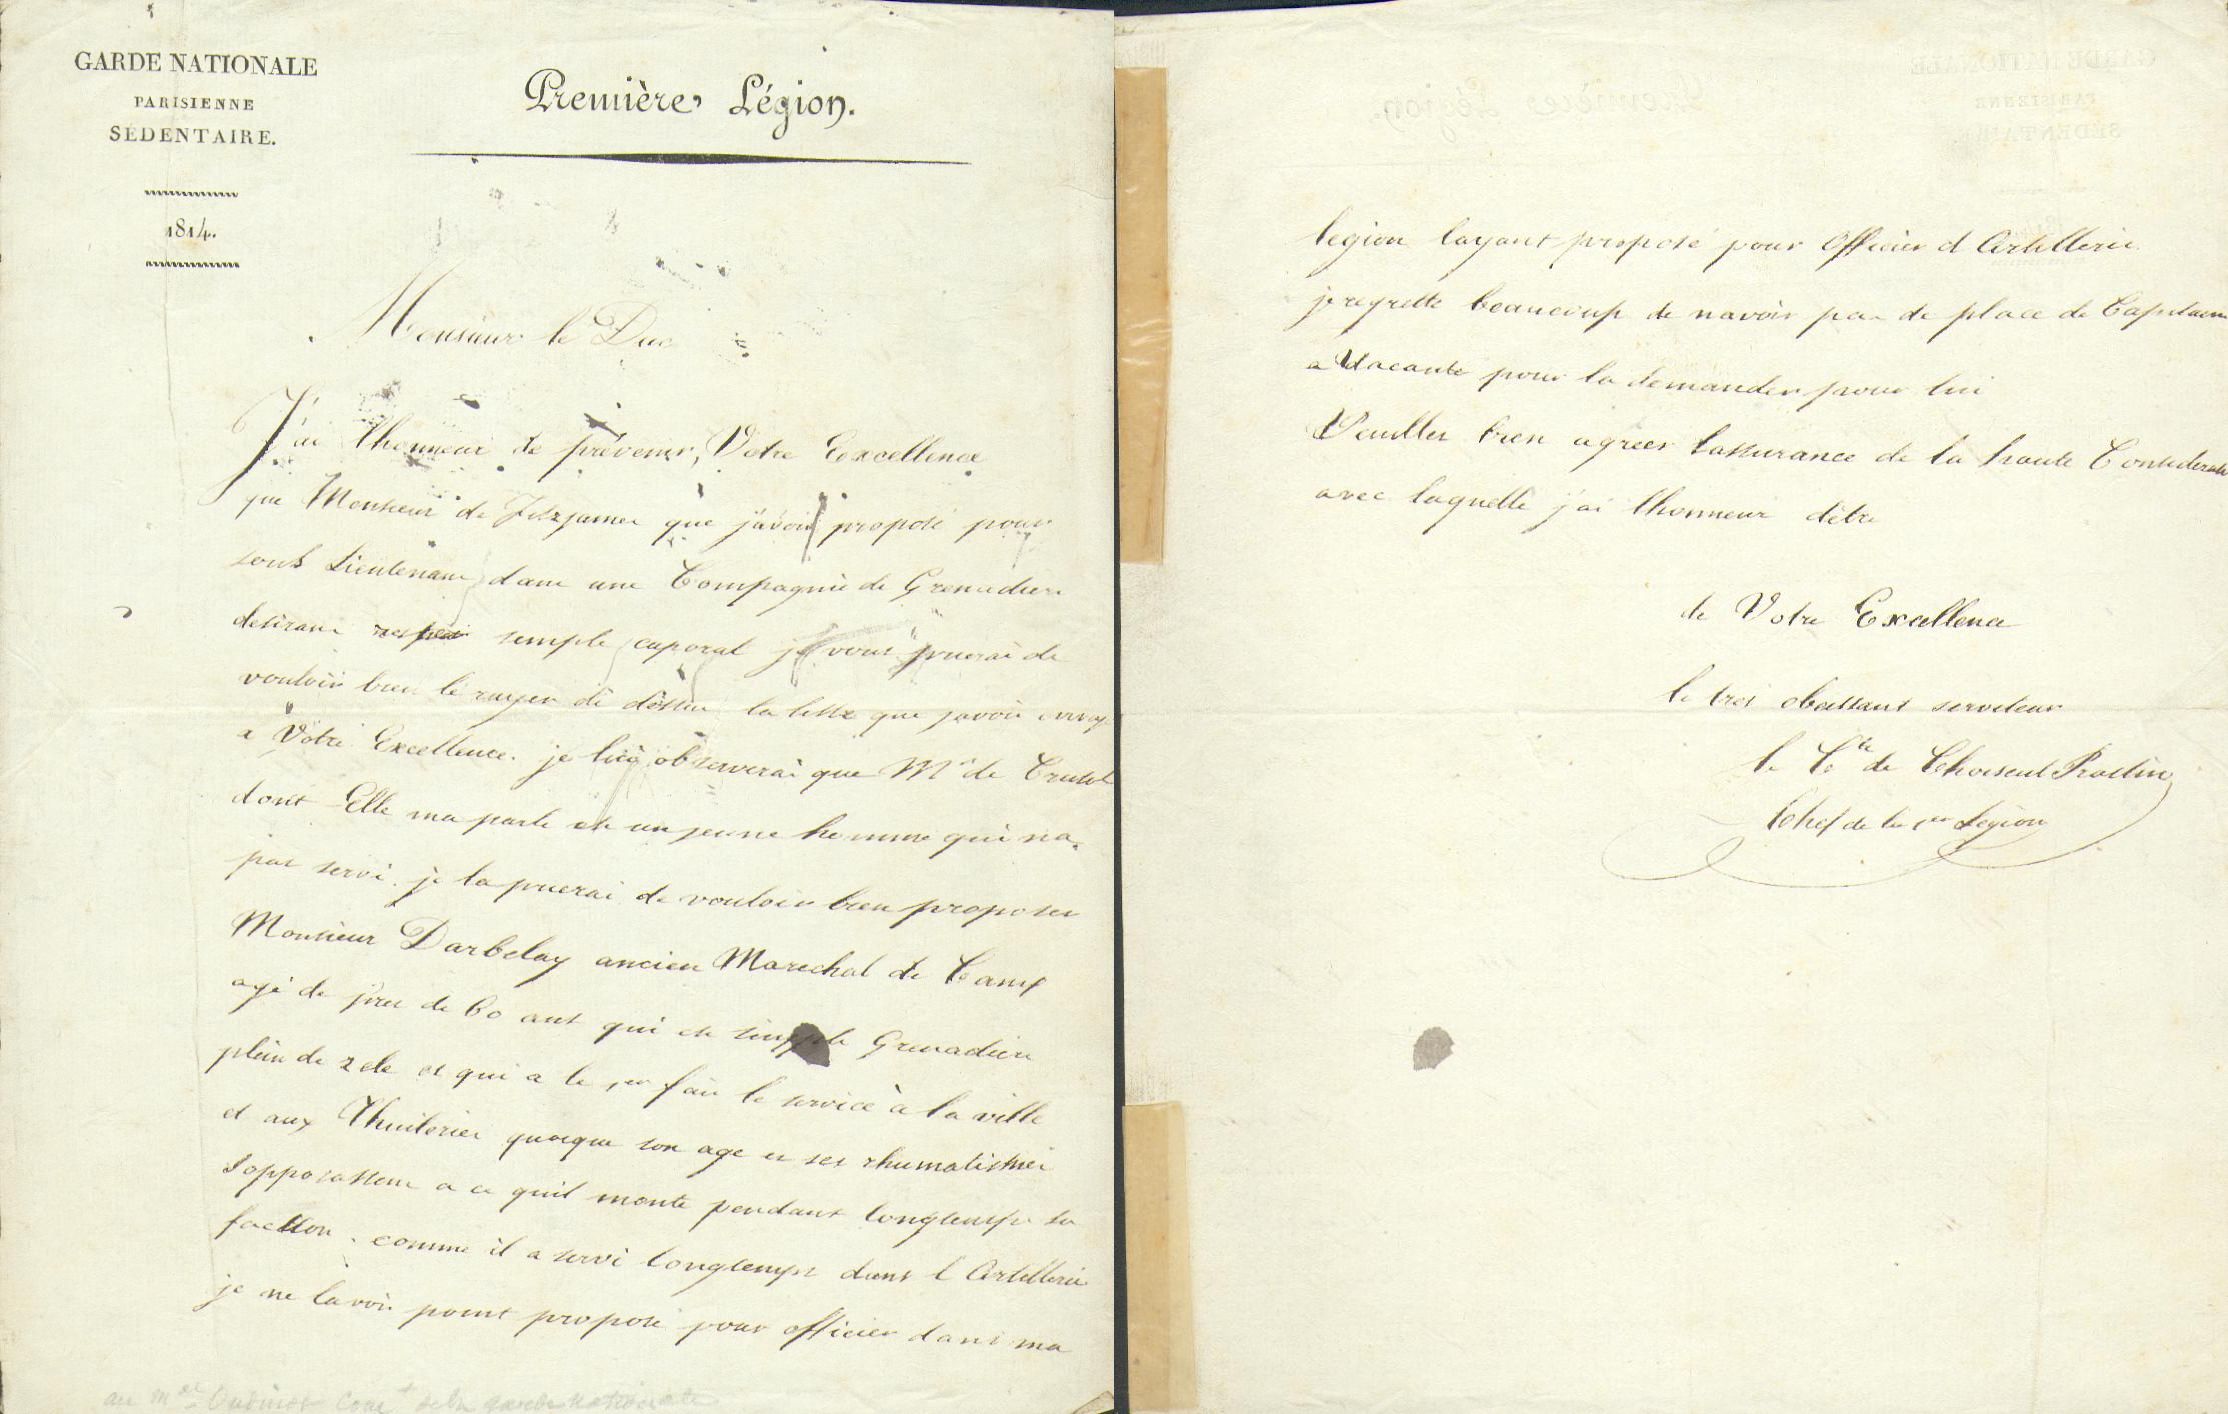 GARDE NATIONALE
PARISIENNE
SÉDENTAIRE.
1814.
Première Légion.
Monsieur le Duc
J'ai lhonneur de prévenir, Votre Excellence
que Monsieur de Fitzjames que j'avois proposé pour
sous Lieutenant dans une Compagnie de Grenadiers
desirant rester simple caporal je vous prierai de
vouloir bien le rayer de dessus la liste que javois envoyé
a Votre Excellence. je lui observerai que Mr de Crussol
dont Elle ma parlé est un jeune homme qui na
pas servi. je la prierai de vouloir bien proposer
Monsieur Darbelay ancien Marechal de Camp
agé de pres de 60 ans qui est simple Grenadier
plein de zele et qui a le 1er fait le service à la ville
et aux Thuileries quoique son age et ses rhumatismes
sopposassent a ce quil monte pendant longtemps sa
faction. comme il a servi longtemps dans l Artillerie
je ne lavois point proposé pour officier dans ma
au mal Oudinot Comt de la garde nationale
legion layant proposé pour Officier d Artillerie
je regrette beaucoup de navoir pas de place de Capitaine
a Vacante pour la demander pour lui
Veuillez bien agreer lassurance de la haute Consideration
avec laquelle j'ai lhonneur d'être
de Votre Excellence
le tres obeissant serviteur
le Cte de Choiseul Praslin
Chef de la 1ere Légion